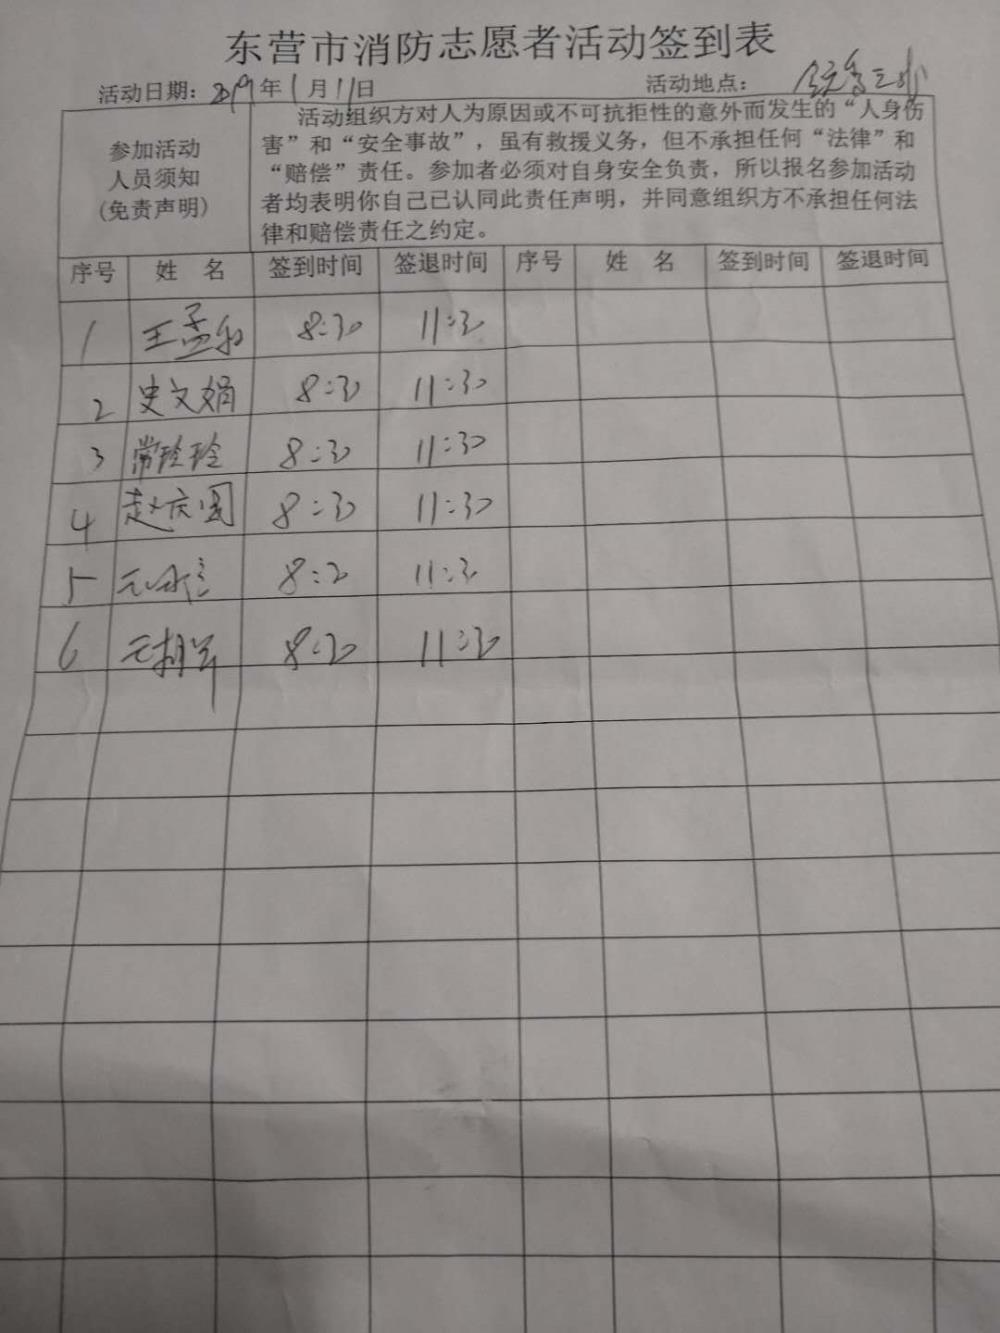 东营市消防志愿者活动签到表
活动日期：2019年1月11日 活动地点：
参加活动
人员须知
(免责声明)
活动组织方对人为原因或不可抗拒性的意外而发生的“人身伤
害”和“安全事故”，虽有救援义务，但不承担任何“法律”和
“赔偿”责任。参加者必须对自身安全负责，所以报名参加活动
者均表明你自己已认同此责任声明，并同意组织方不承担任何法
律和赔偿责任之约定。
序号 姓 名 签到时间 签退时间 序号 姓 名 签到时间 签退时间
1 王孟 8:30 11:30
2 史文娟 8:30 11:30
3 常玲玲 8:30 11:30
4 赵庆国 8:30 11:30
5 8:30 11:30
6 8:30 11:30